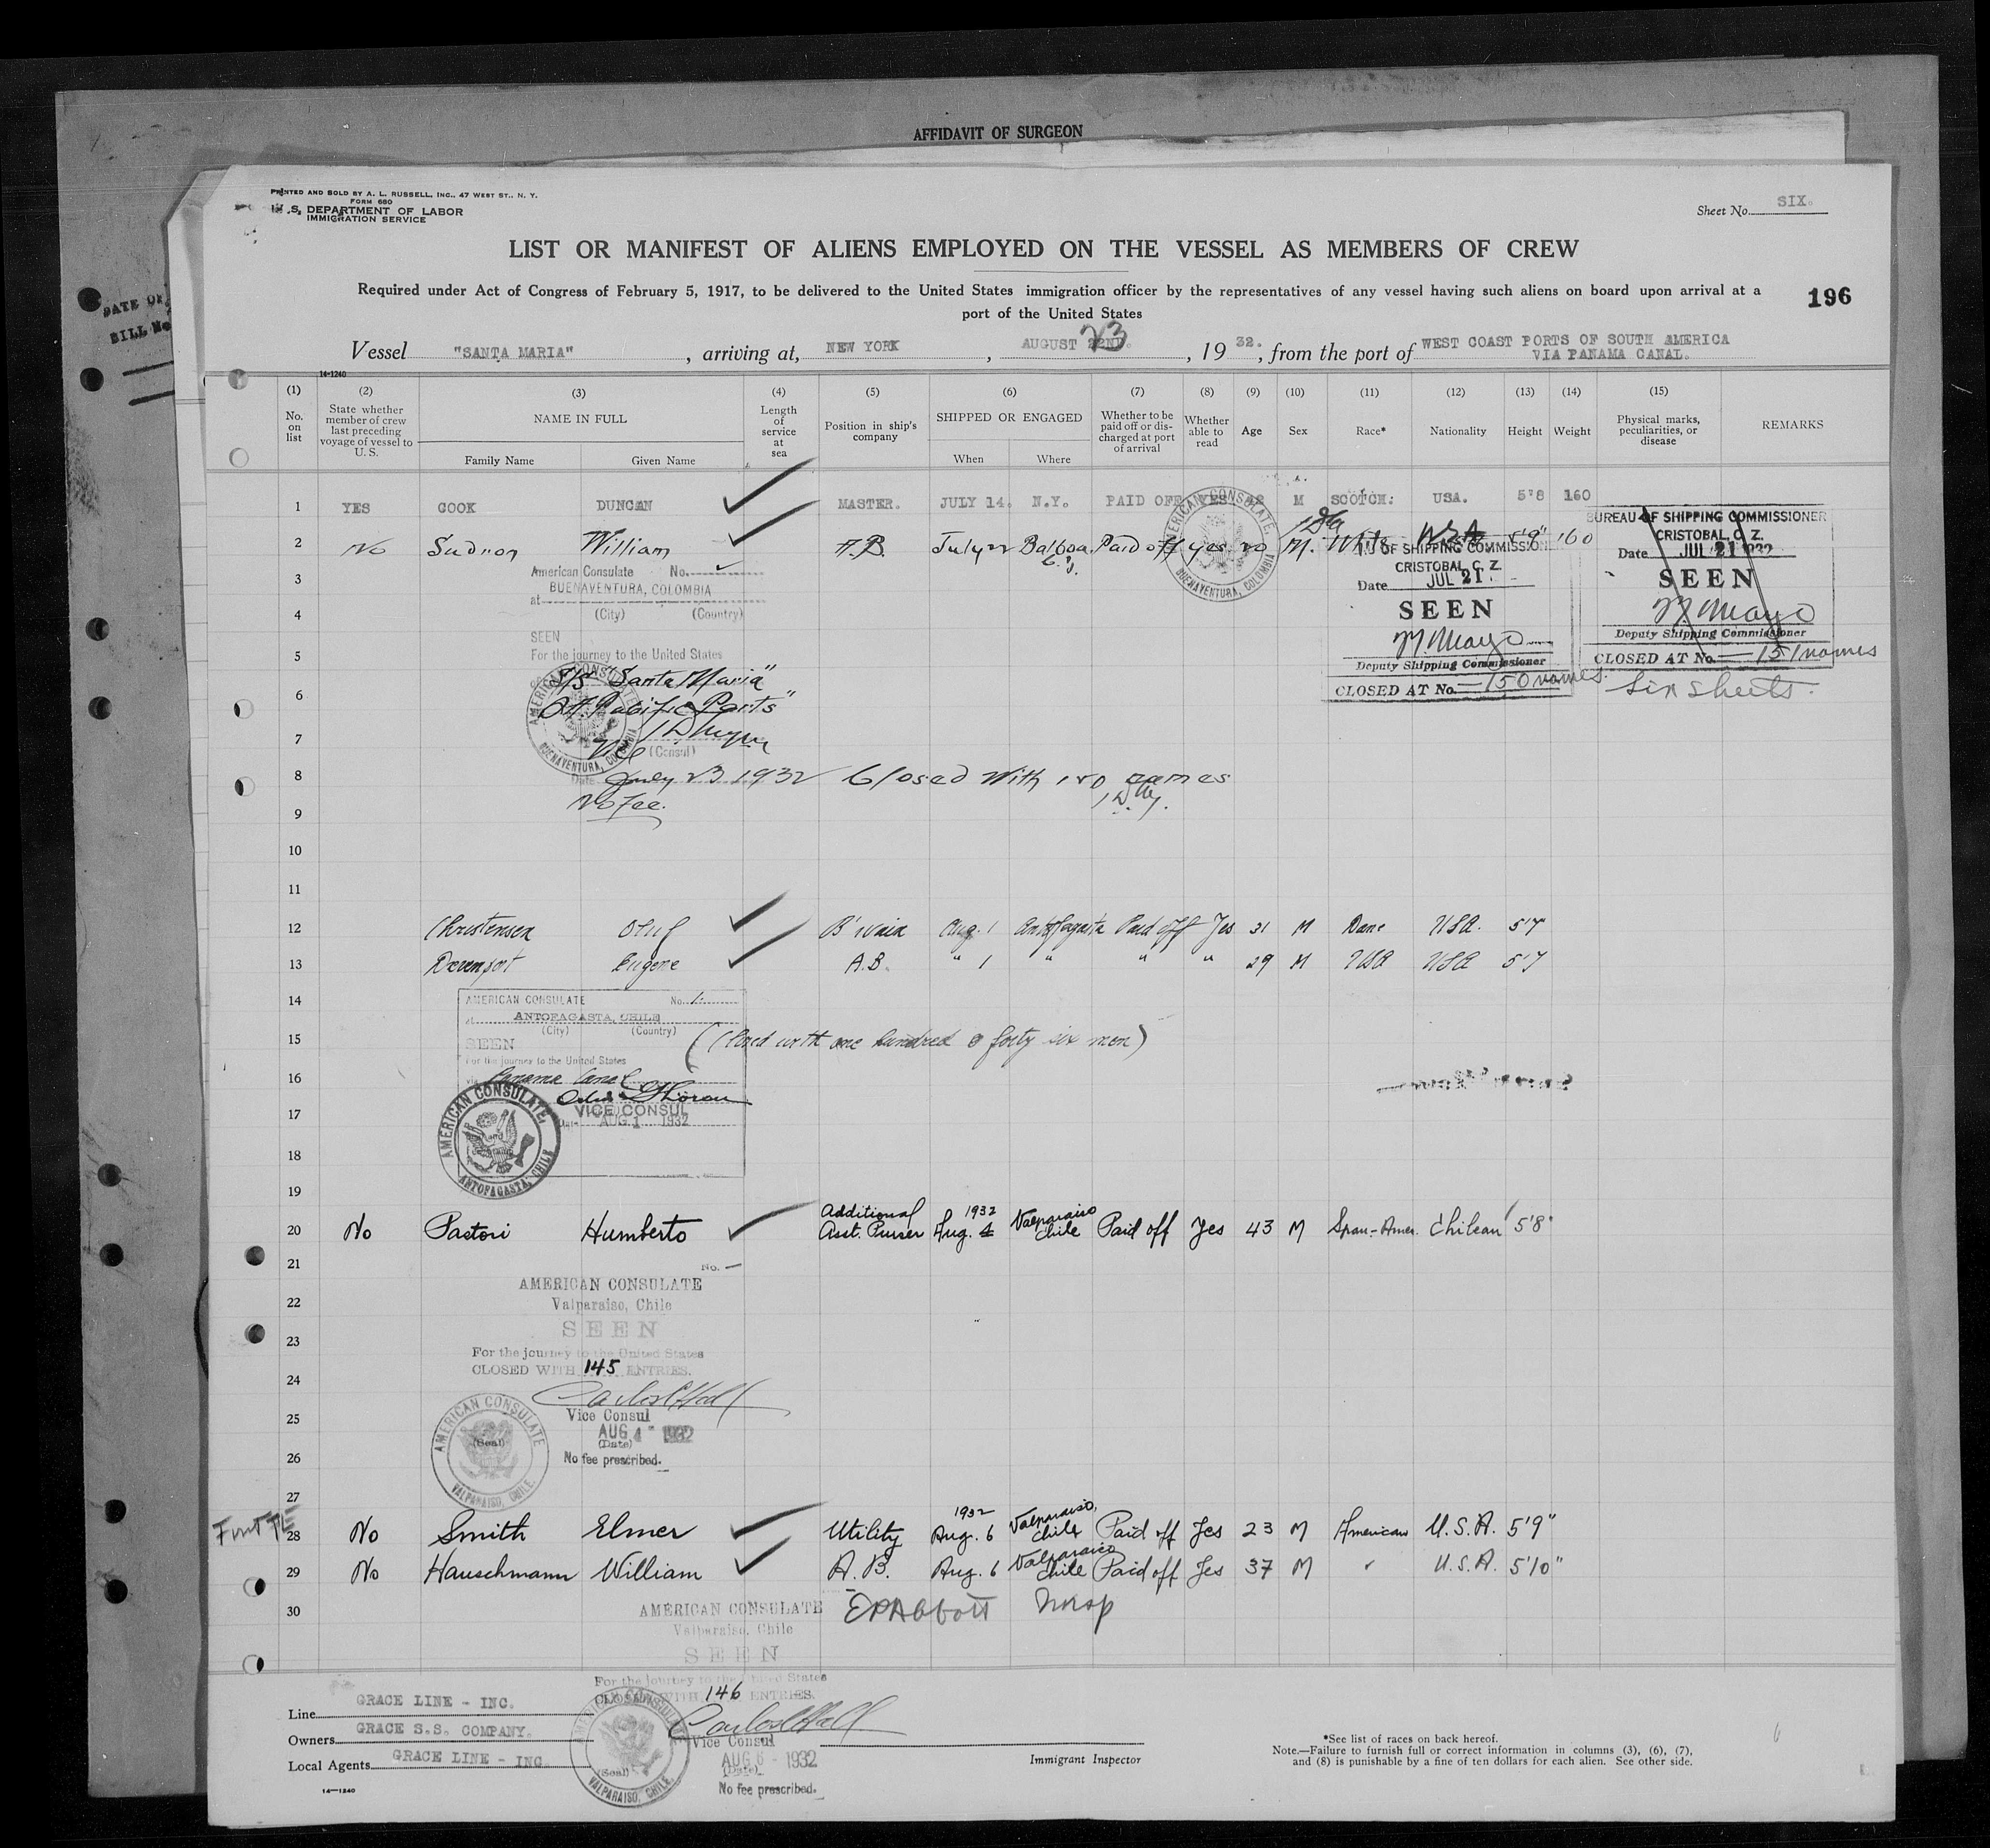 AFFIDAVIT OF SURGEON
PRINTED AND SOLD BY A. L. RUSSELL, INC., 47 WEST ST., N. Y.
FORM 680
U. S. DEPARTMENT OF LABOR
IMMIGRATION SERVICE
Sheet No. SIX.
LIST OR MANIFEST OF ALIENS EMPLOYED ON THE VESSEL AS MEMBERS OF CREW
Required under Act of Congress of February 5, 1917, to be delivered to the United States immigration officer by the representatives of any vessel having such aliens on board upon arrival at a
port of the United States
196
DATE OF
BILL No
Vessel "SANTA MARIA", arriving at, NEW YORK, AUGUST 22ND. 23, 1932., from the port of WEST COAST PORTS OF SOUTH AMERICA
VIA PANAMA CANAL.
14-1240
(1) No. on list
(2) State whether member of crew last preceding voyage of vessel to U. S.
(3) NAME IN FULL Family Name Given Name
(4) Length of service at sea
(5) Position in ship's company
(6) SHIPPED OR ENGAGED When Where
(7) Whether to be paid off or discharged at port of arrival
(8) Whether able to read
(9) Age
(10) Sex
(11) Race*
(12) Nationality
(13) Height
(14) Weight
(15) Physical marks, peculiarities, or disease
REMARKS
1 YES COOK DUNCAN MASTER. JULY 14. N.Y. PAID OFF YES M SCOTCH: USA. 5'8 160
2 No William A.B. July 22 Balboa Paid off yes 20 M. White USA 5'9" 160
3
American Consulate No.
at BUENAVENTURA, COLOMBIA
(City) (Country)
4
SEEN
5
For the journey to the United States
S/S "Santa Maria"
6
Pacific Ports"
7
Vice (Consul)
8
Date July 23 1932 Closed with 150 names
No fee.
9
AMERICAN CONSULATE, BUENAVENTURA, COLOMBIA
AMERICAN CONSULATE, BUENAVENTURA, COLOMBIA
BUREAU OF SHIPPING COMMISSIONER
CRISTOBAL, C. Z.
Date JUL 21 1932
SEEN
M Mayo
Deputy Shipping Commissioner
CLOSED AT No. — 151 names
Six sheets.
OF SHIPPING COMMISSIONE
CRISTOBAL, C. Z.
Date JUL 21.
SEEN
M Mayo
Deputy Shipping Commissioner
CLOSED AT No. — 150 names.
10
11
12 Christensen Oluf Aug. 1 Antofagasta Paid off Yes 31 M Dane USA. 5'7
13 Davenport Eugene A.B. " 1 " " " 29 M USA USA 5'7
14
AMERICAN CONSULATE No. 1.
at ANTOFAGASTA, CHILE
(City) (Country)
15
SEEN
(Closed with one hundred & forty six men)
For the journey to the United States
16
via Panama Canal
17
VICE CONSUL
Date AUG 1 1932
AMERICAN CONSULATE, ANTOFAGASTA, CHILE
18
19
20 No Pastori Humberto Additional Asst. Purser 1932 Aug. 4 Valparaiso Chile Paid off Yes 43 M Span.-Amer. Chilean 5'8"
21
No. —
AMERICAN CONSULATE
22
Valparaiso, Chile
SEEN
23
For the journey to the United States
CLOSED WITH 145 ENTRIES.
24
Carlos C Hall
Vice Consul
25
AUG 4 - 1932
(Date)
26
No fee prescribed.
AMERICAN CONSULATE (Seal) VALPARAISO, CHILE.
27
28 No Smith Elmer Utility 1932 Aug. 6 Valparaiso, Chile Paid off Yes 23 M American U.S.A. 5'9"
29 No Hauschmann William A.B. Aug. 6 Valparaiso Chile Paid off Yes 37 M " U.S.A. 5'10"
30
AMERICAN CONSULATE
EPAbbott Insp
Valparaiso, Chile
SEEN
For the journey to the United States
CLOSED WITH 146 ENTRIES.
Carlos C Hall
Vice Consul
AUG 6 - 1932
(Date)
No fee prescribed.
AMERICAN CONSULATE (Seal) VALPARAISO, CHILE.
Line GRACE LINE - INC.
Owners GRACE S.S. COMPANY.
Local Agents GRACE LINE - INC
14—1240
Immigrant Inspector
*See list of races on back hereof.
Note.—Failure to furnish full or correct information in columns (3), (6), (7),
and (8) is punishable by a fine of ten dollars for each alien. See other side.